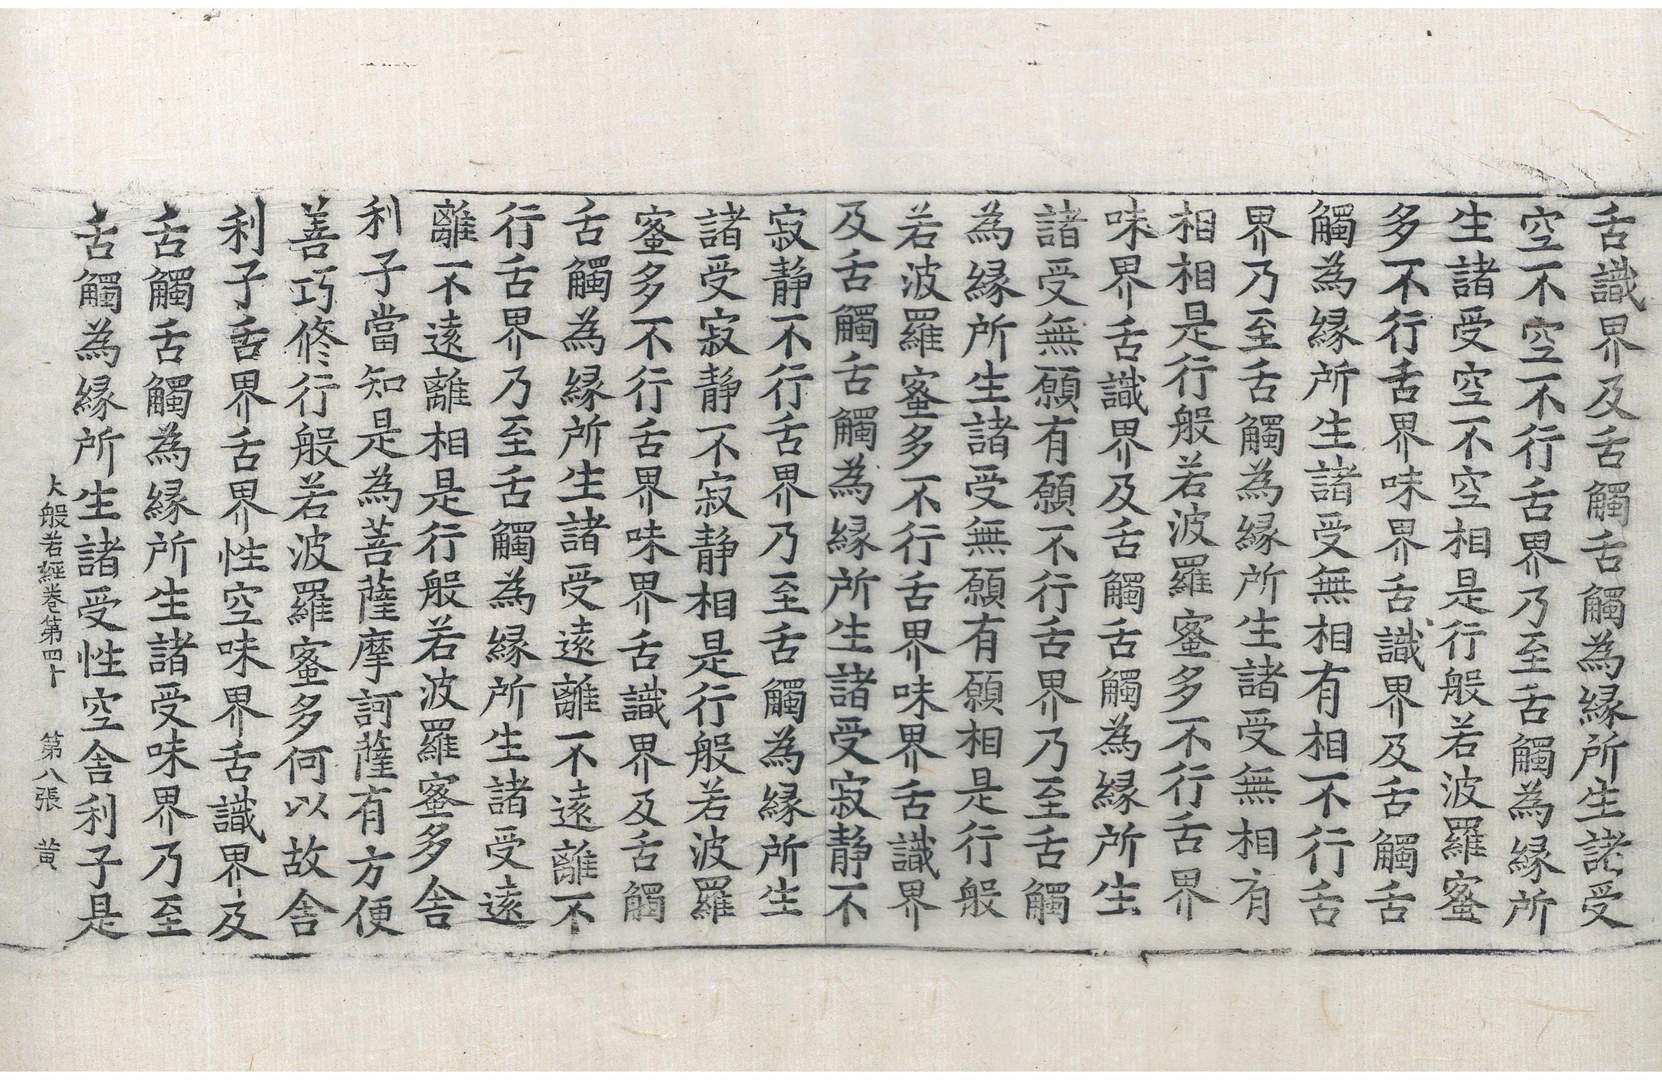 舌識界及舌觸舌觸為縁所生諸受
空不空不行舌界乃至舌觸為縁所
生諸受空不空相是行般若波羅蜜
多不行舌界味界舌識界及舌觸舌
觸為縁所生諸受無相有相不行舌
界乃至舌觸為縁所生諸受無相有
相相是行般若波羅蜜多不行舌界
味界舌識界及舌觸舌觸為縁所生
諸受無願有願不行舌界乃至舌觸
為縁所生諸受無願有願相是行般
若波羅蜜多不行舌界味界舌識界
及舌觸舌觸為縁所生諸受寂静不
寂静不行舌界乃至舌觸為縁所生
諸受寂静不寂静相是行般若波羅
蜜多不行舌界味界舌識界及舌觸
舌觸為縁所生諸受遠離不遠離不
行舌界乃至舌觸為縁所生諸受遠
離不遠離相是行般若波羅蜜多舎
利子當知是為菩薩摩訶薩有方便
善巧修行般若波羅蜜多何以故舎
利子舌界舌界性空味界舌識界及
舌觸舌觸為縁所生諸受味界乃至
舌觸為縁所生諸受性空舎利子是
大般若經卷第四十 第八張 黄